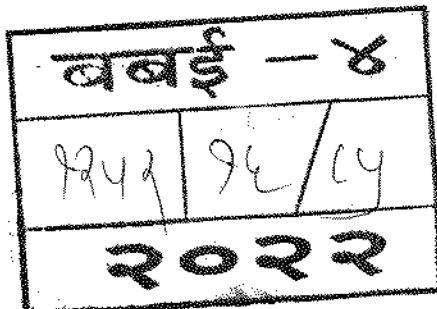 बबई - ४
१२५२ १६/८५
२०२२